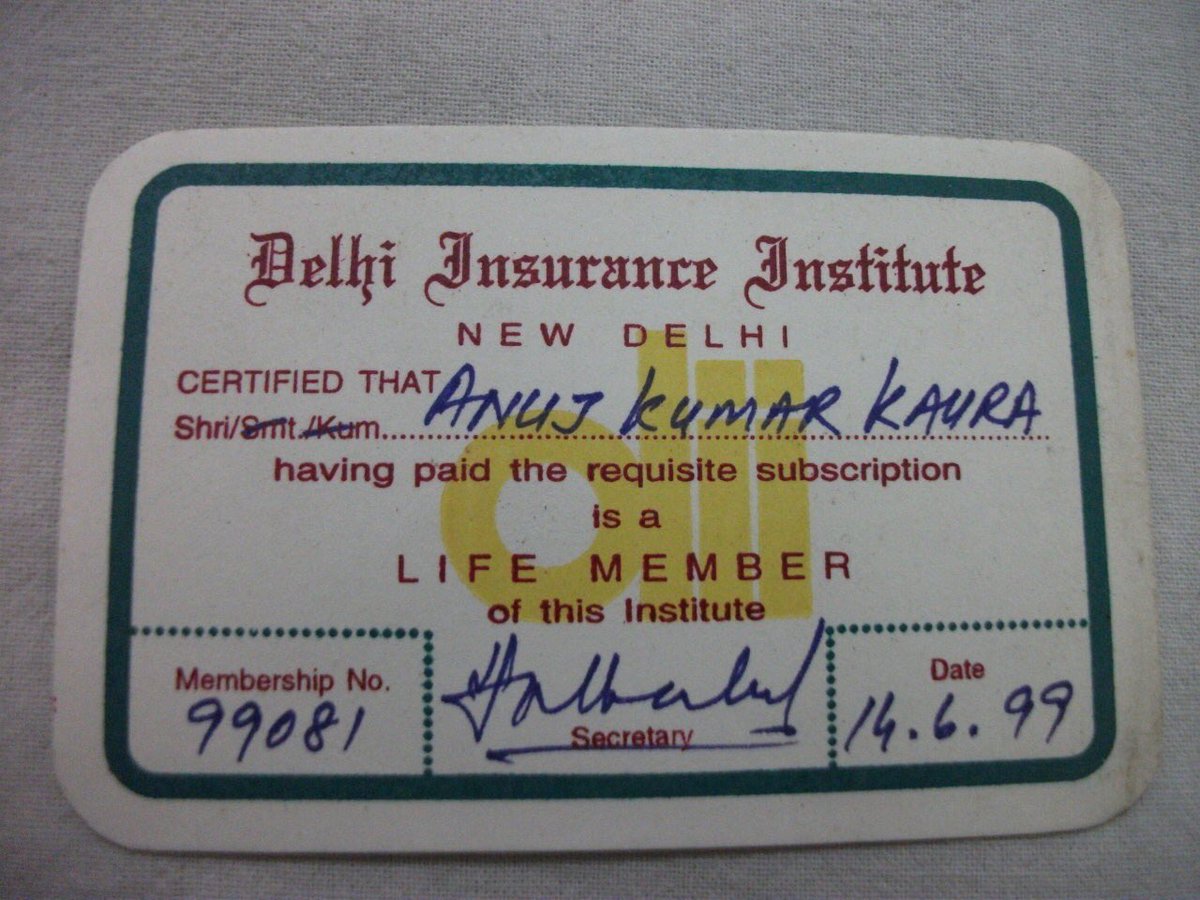 Delhi Insurance Institute
NEW DELHI
CERTIFIED THAT
Shri/Smt./Kum. ANUJ KUMAR KAURA
having paid the requisite subscription
is a
LIFE MEMBER
of this Institute
Membership No.
99081
Secretary
Date
14.6.99
dii